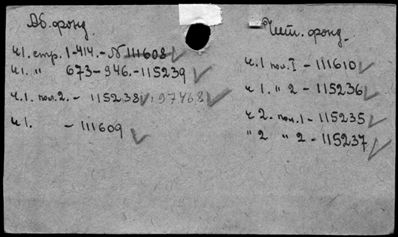 Аб. фонд.
ч1. стр. 1-414. - N 111608
ч1. " 673-946. - 115239
ч.1. пол. 2. - 115238, 97468
ч1. - 111609
Чит. фонд.
ч.1 пол. I - 111610
ч 1. " 2 - 115236
ч 2. пол. 1 - 115235
" 2 " 2 - 115237